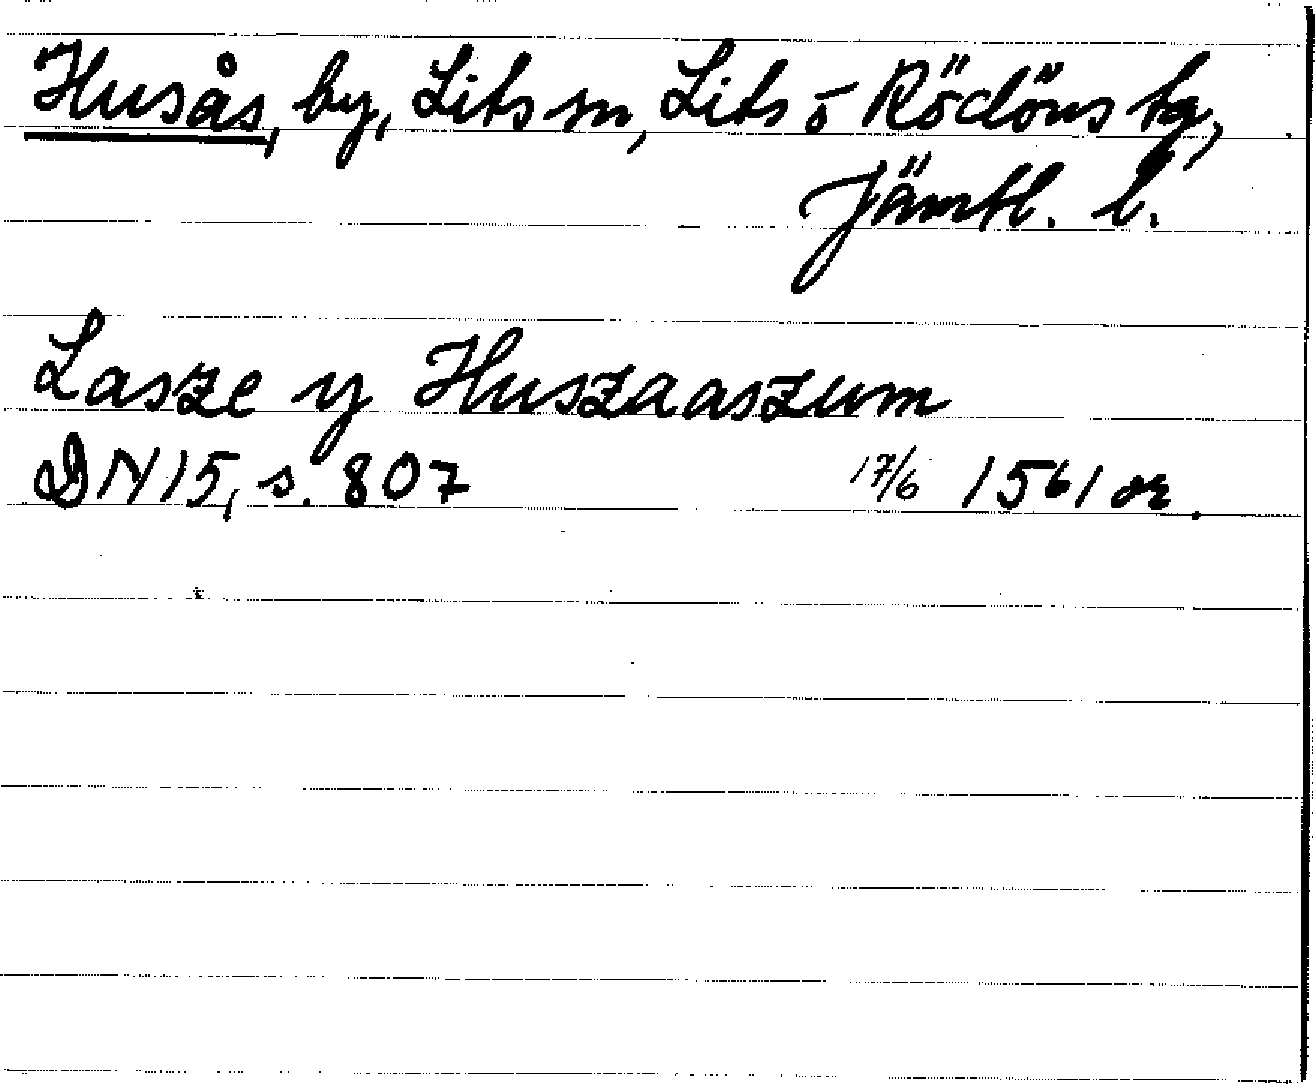 Husås, by, Lits sn, Lits o Rödöns tg,
Jämtl. l.
Lasze y Huszaaszum
DN 15, s. 807 17/6 1561 or.